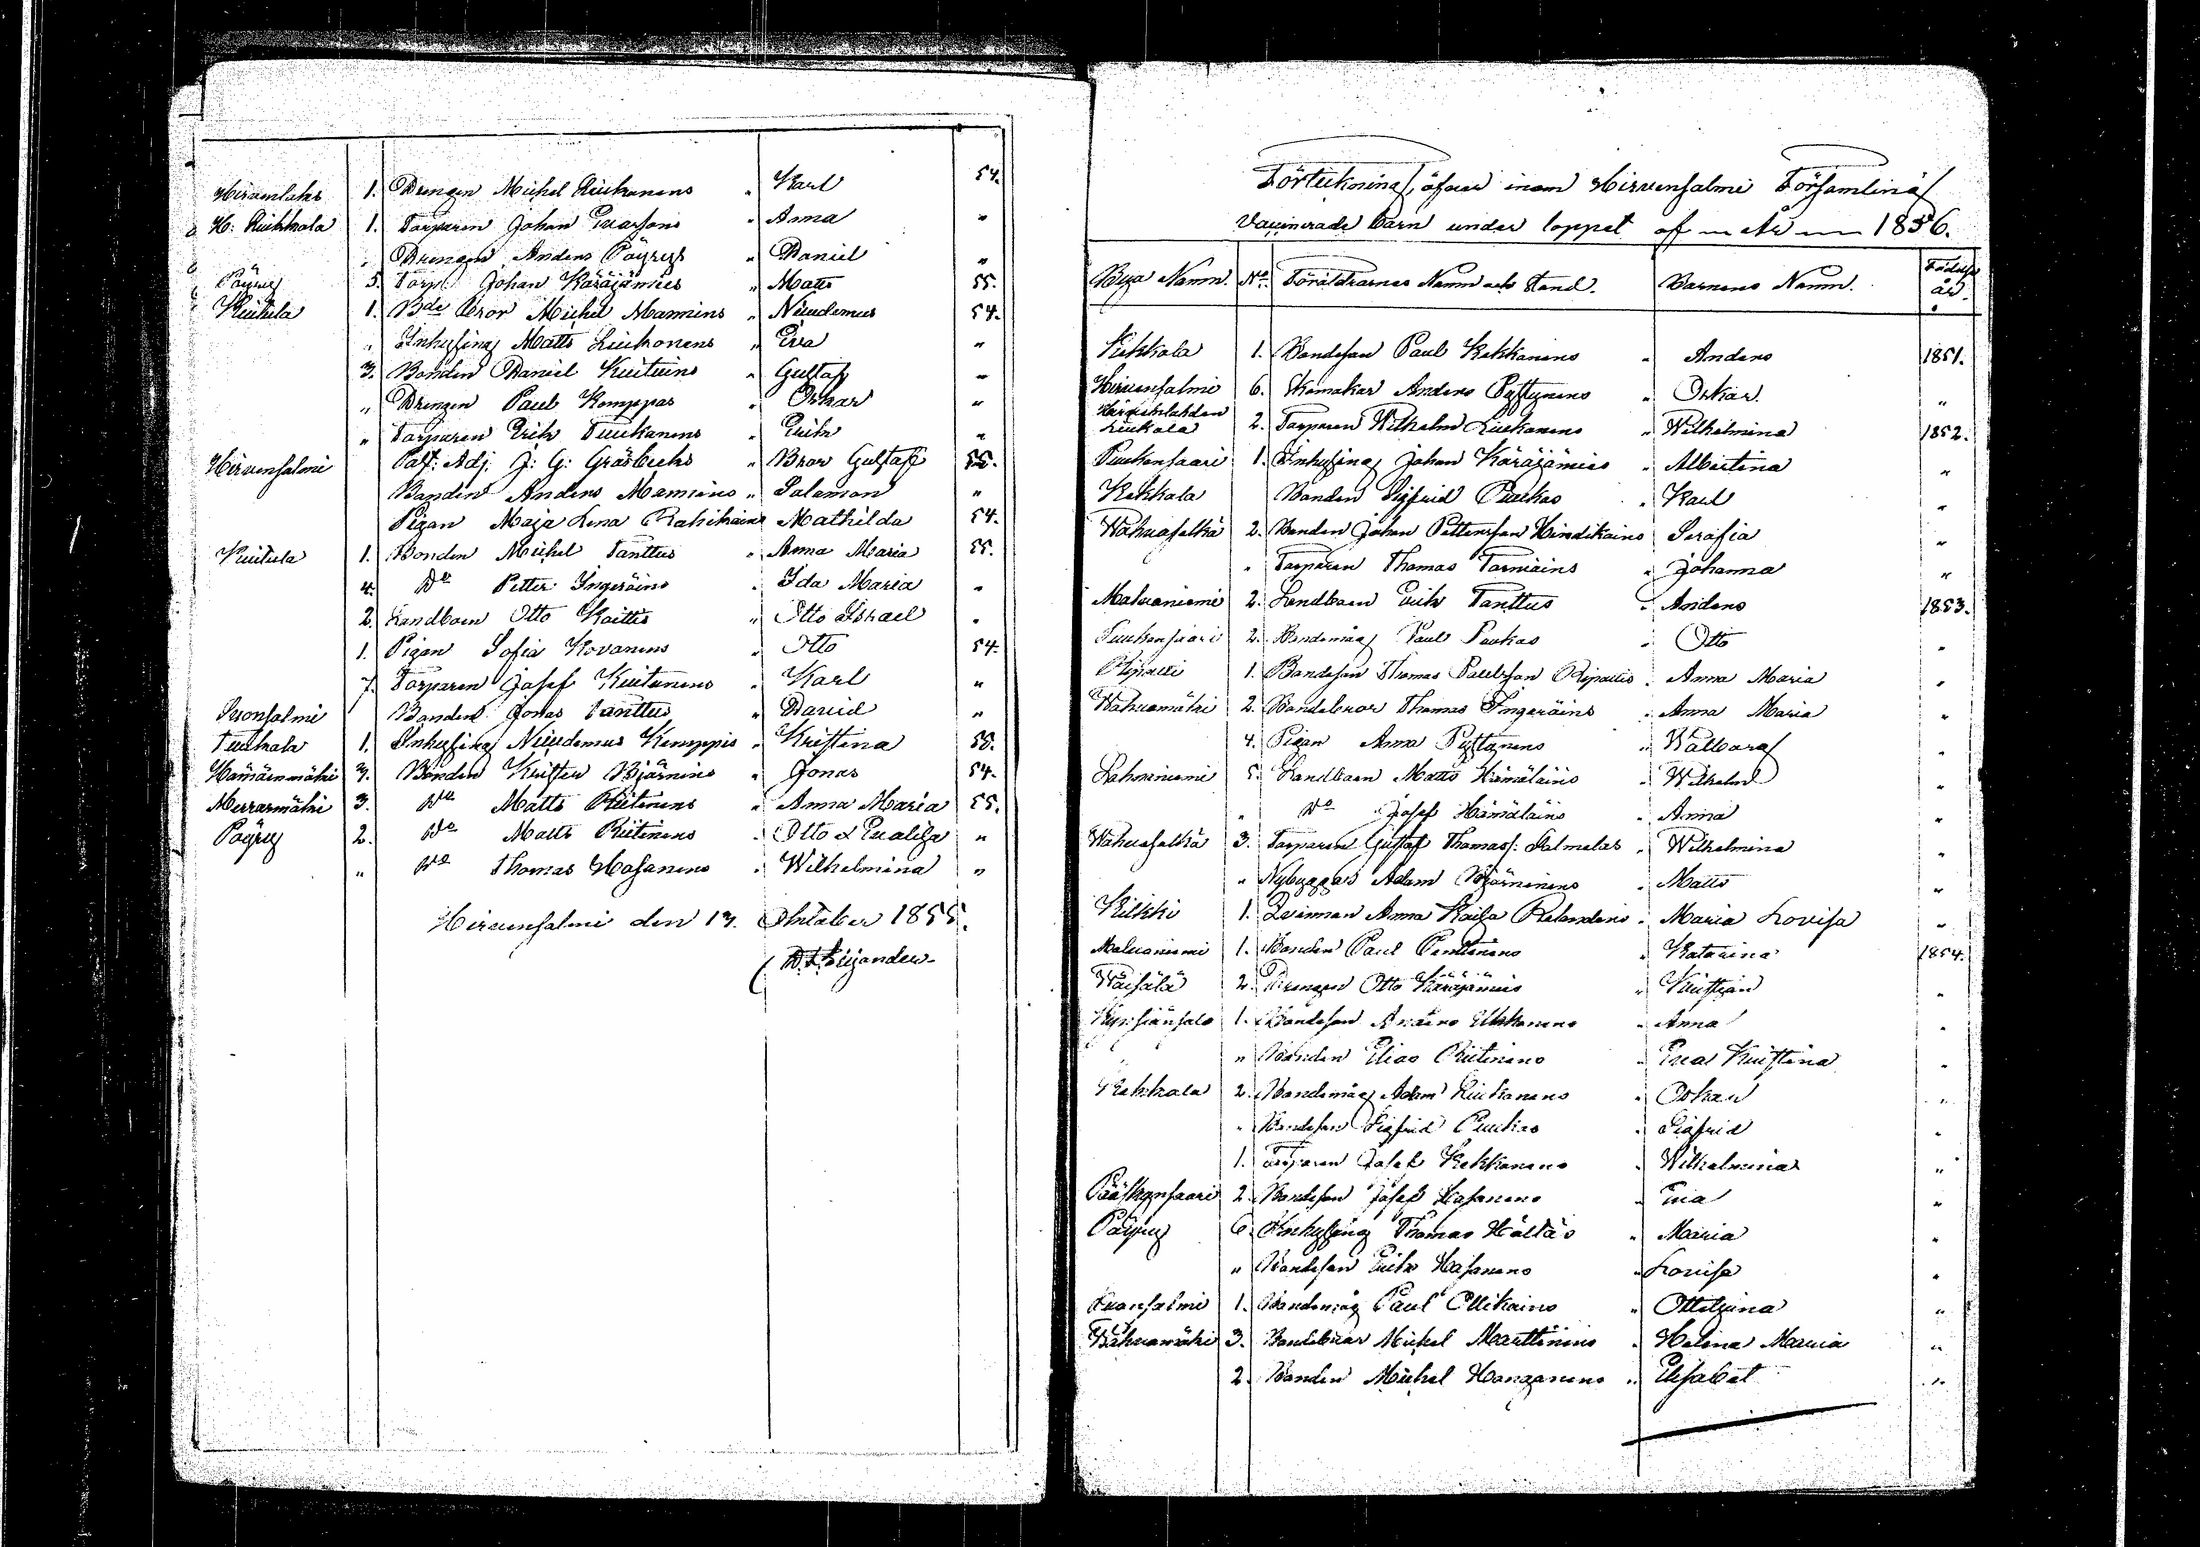 Hirvenlahs 1. Drengen Michel Liukonens " Karl 54.
H: Liukkala 1. Torparen Johan Evassons " Anna "
" Drengen Anders Päyrys " Daniel "
Päyry 5. Torp: Johan Käräjämies " Matts 55.
Kuitula 1. Bde Bror Michel Mannins " Nicodemus 54.
" Inhysing Matts Liukonens " Eva "
3. Bonden Daniel Kuituins " Gustaf "
" Drengen Paul Komppas " Oskar "
" Torparen Erik Tuukanens " Erik "
Hirvensalmi Past: Adj. J: G: Gråsbecks " Bror Gustaf 55.
Bonden Anders Mannins " Salomon "
Pigan Maja Lena Rahikains Mathilda 54.
Kuitula 1. Bonden Michel Tanttus " Anna Maria 55.
4. Do Petter Ingeräins " Ida Maria "
2. Landboen Otto Koittis " Otto Israel "
1. Pigan Sofia Kovanens " Otto 54.
7. Torparen Josef Kuitunens " Karl "
Suonsalmi Bonden Jonas Tanttus " David "
Tuukkala 1. Inhysing Nicodemus Kemppis " Kristina 55.
Hämäenmäki 3. Bonden Krister Björnins " Jonas 54.
Merrasmäki 3. Do Matts Riitinens " Anna Maria 55.
Päyry 2. Do Matts Riitinens " Otto & Eva Lisa "
" Do Thomas Hasanens " Wilhelmina "
Hirvensalmi den 13. Oktober 1855.
Förteckning, öfver inom Hirvensalmi Församling
Vaccinerade barn under loppet af år 1856.
Bya Namn. No. Föräldrarnes Namn och Stånd. Barnens Namn. Födelse år.
Kekkola 1. Bondeson Paul Kekkonens " Anders 1851.
Hirvensalmi 6. Skomakar Anders Pyttynens " Oskar "
Liukola 2. Torparen Wilhelm Liukonens " Wilhelmina 1852.
Puukonsaari 1. Inhysing Johan Käräjämies " Albertina "
Kekkola Bonden Sigfrid Puukas " Karl "
Wahvaselkä 2. Bonden Johan Pettersson Hindikains Serafia "
" Torparen Thomas Tarniains " Johanna "
Malvaniemi 2. Landboen Erik Tanttus " Anders 1853.
Puukonsaari 2. Bondemåg Paul Puukas " Otto "
Ripatti 1. Bondeson Thomas Paulsson Ripattis " Anna Maria "
Wahvamäki 2. Bondebror Thomas Ingeräins " Anna Maria "
4. Pigan Anna Pyttynens " Walborg "
Lahnaniemi 5. Landboen Matts Hämäläins " Wilhelm "
" Do Josef Hämäläins " Anna "
Wahvaselkä 3. Torparen Gustaf Thomass: Salmelas " Wilhelmina "
" Nybyggars Adam Björninens " Matts "
Kilkki 1. Qvinnan Anna Kaisa Relanders " Maria Lovisa "
Malvaniemi 1. Bonden Paul Penttinens " Katarina 1854.
Väisälä 2. Drengen Otto Käräjämies " Kristian "
1. Bondeson Anders Ukkonens " Anna "
" Bonden Elias Riitinens " Eva Kristina "
Kekkola 2. Bondemåg Adam Liukonens " Oskar "
" Bondeson Sigfrid Puukas " Sigfrid "
1. Torparen Josef Kekkonens " Wilhelmina "
Pääskynsaari 2. Bondeson Josef Hasanens " Eva "
Päyry 6. Inhysing Thomas Hältäs " Maria "
" Bondeson Erik Hasanens " Lovisa "
Suonsalmi 1. Bondemåg Paul Ollikains " Ottiliana "
Wahvamäki 3. Bondebror Michel Marttinens " Helena Maria "
2. Bonden Michel Hongonens " Elisabet "